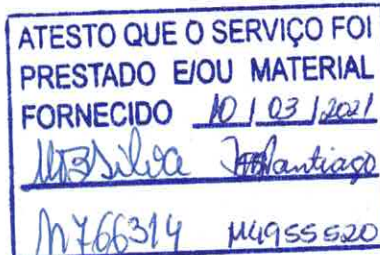 ATESTO QUE O SERVIÇO FOI
PRESTADO E/OU MATERIAL
FORNECIDO 10 / 03 / 2021
Silva Santiago
M766314 M4955520